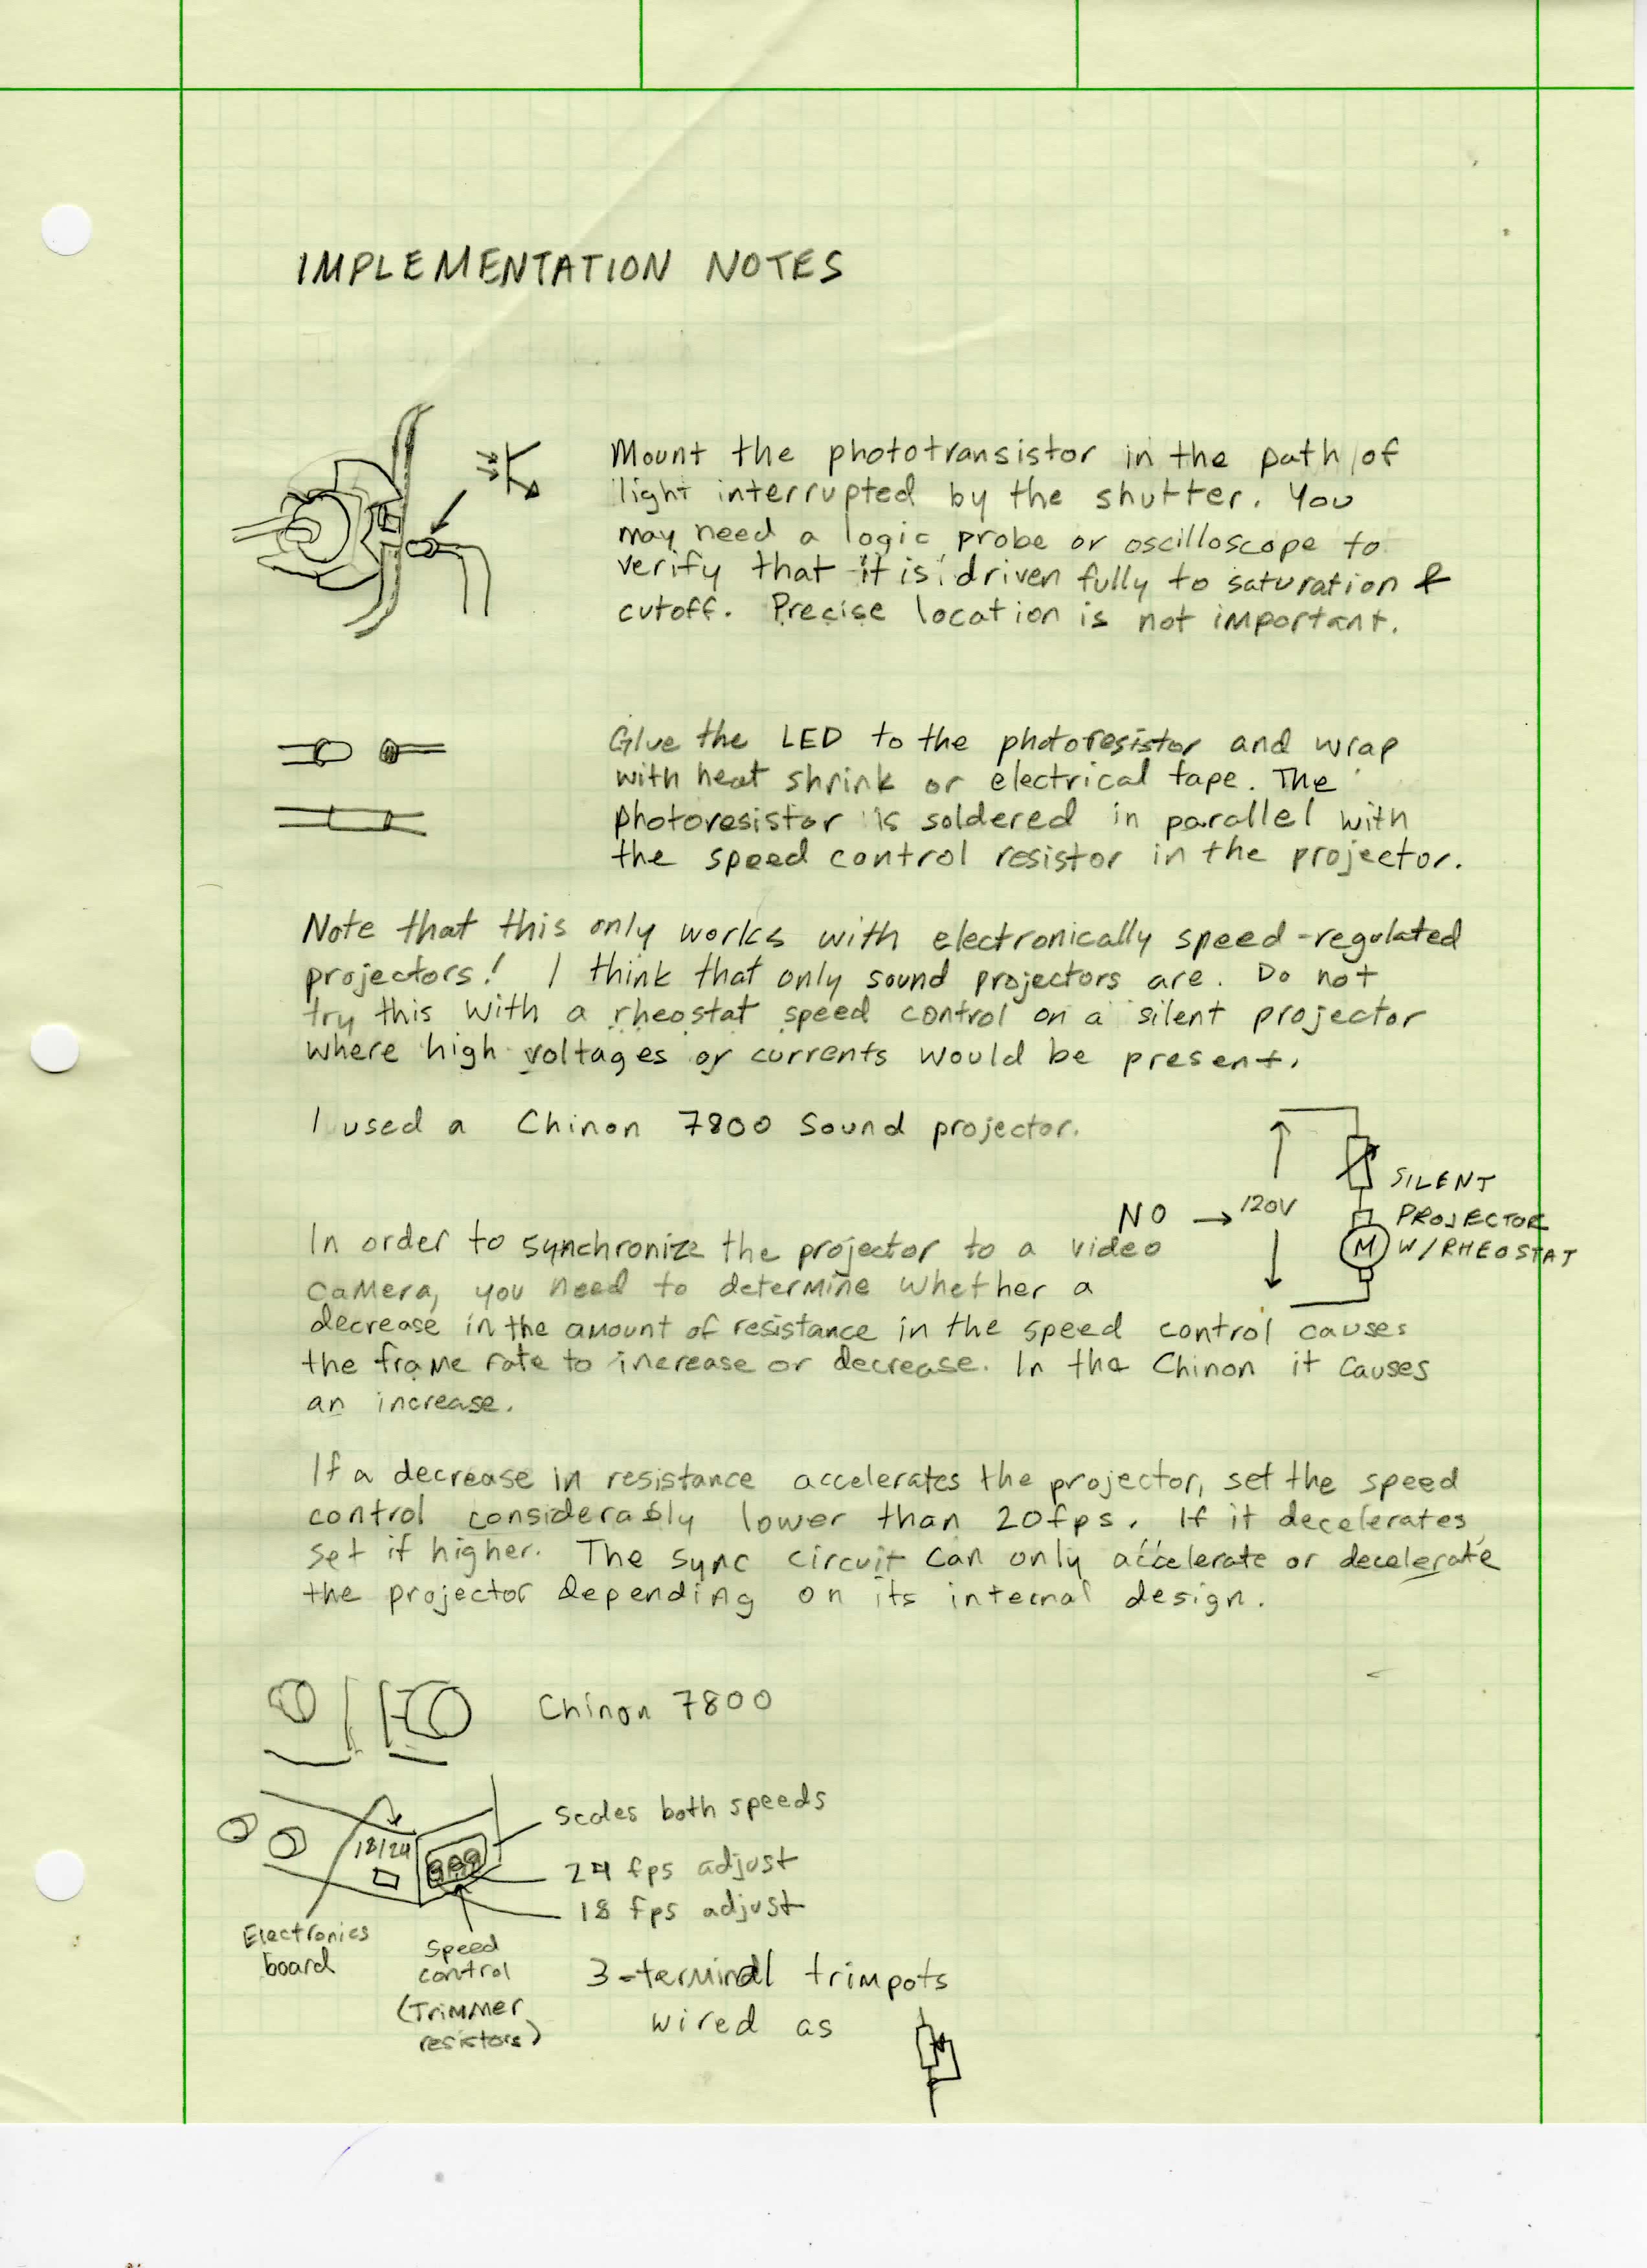 IMPLEMENTATION NOTES
Mount the phototransistor in the path of
light interrupted by the shutter. You
may need a logic probe or oscilloscope to
verify that it is driven fully to saturation &
cutoff. Precise location is not important.
Glue the LED to the photoresistor and wrap
with heat shrink or electrical tape. The
photoresistor is soldered in parallel with
the speed control resistor in the projector.
Note that this only works with electronically speed-regulated
projectors! I think that only sound projectors are. Do not
try this with a rheostat speed control on a silent projector
where high voltages or currents would be present.
I used a Chinon 7800 Sound projector.
NO → 120V
SILENT
PROJECTOR
W/RHEOSTAT
M
In order to synchronize the projector to a video
camera, you need to determine whether a
decrease in the amount of resistance in the speed control causes
the frame rate to increase or decrease. In the Chinon it causes
an increase.
If a decrease in resistance accelerates the projector, set the speed
control considerably lower than 20fps. If it decelerates,
set it higher. The sync circuit can only accelerate or decelerate
the projector depending on its internal design.
Chinon 7800
Scales both speeds
18/24
24 fps adjust
18 fps adjust
Electronics
board
Speed
control
(Trimmer
resistors)
3-terminal trimpots
wired as